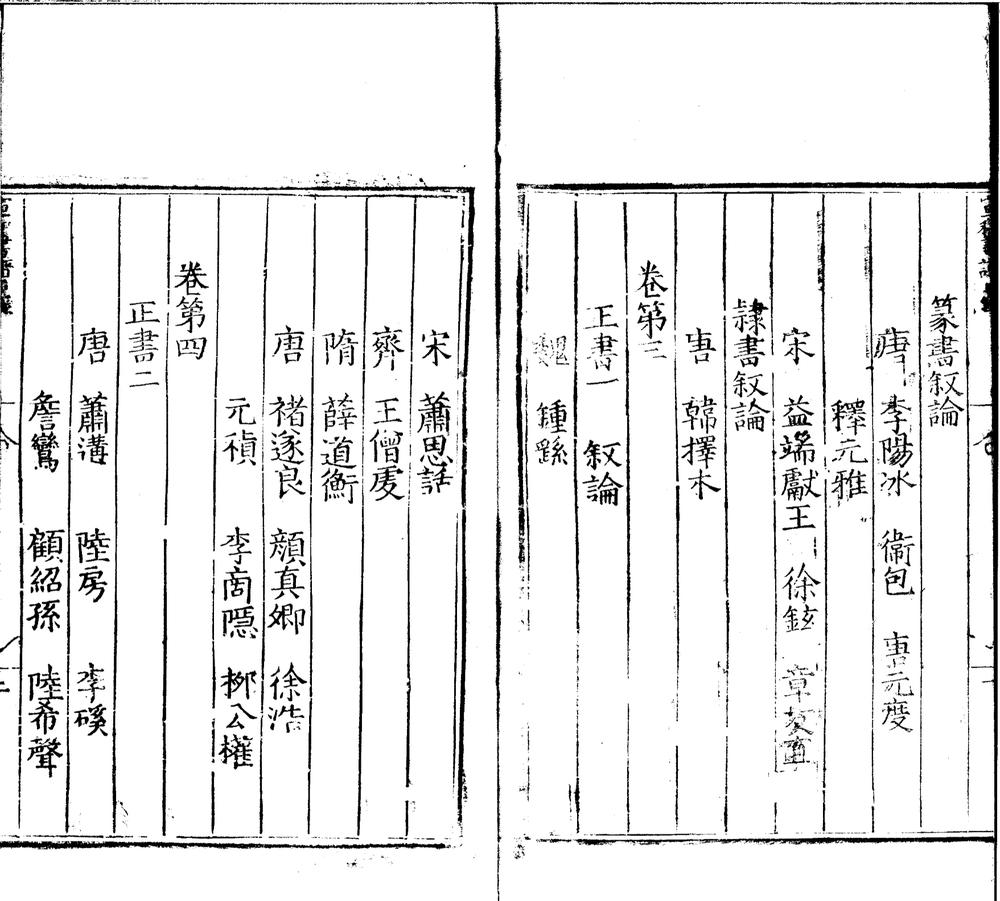 篆書叙論
唐 李陽冰 衞包 唐元度
釋元雅
宋 益端獻王 徐鉉 章友直
隷書叙論
唐 韓擇木
卷第三
正書一 叙論
魏 鍾繇
宋 蕭思話
齊 王僧䖍
隋 薛道衡
唐 禇遂良 顔真卿 徐浩
元稹 李商隱 柳公權
卷第四
正書二
唐 蕭溝 陸房 李磎
詹鸞 顧紹孫 陸希聲